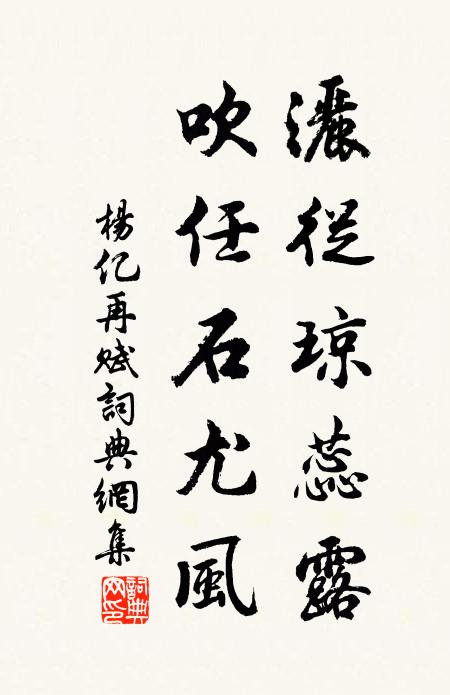 灑從瓊蕊露
吹任石尤風
楊亿再賦詞典網集
詞典
网印